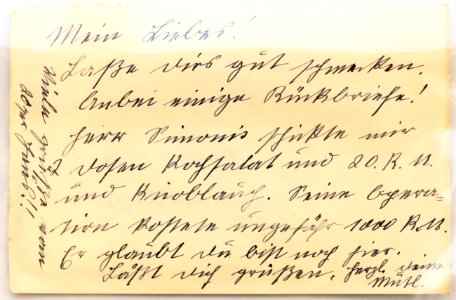 Mein Liebes!
Laße dirs gut schmecken.
Anbei einige Rückbriefe!
Herr Simonis schickte mir
2 Dosen Kochsalat und 20. R.M.
und Knoblauch. Seine Opera=
tion kostete ungefähr 1000 R.M.
Er glaubt du bist noch hier.
Läßt dich grüßen. Herzl. deine
Mutl.
Viele Grüße von